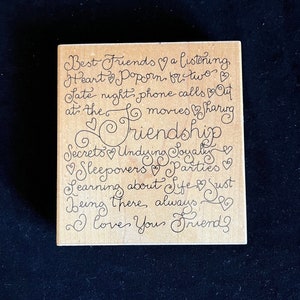 Best Friends ♡ a listening
Heart ♡ Popcorn for two
Late night phone calls ♡ Out
at the ♡ movies ♡ Sharing
Friendship
Secrets ♡ Undying Loyalty
♡ Sleepovers ♡ Parties ♡
Learning about Life ♡ Just
being There, always
I love You Friend